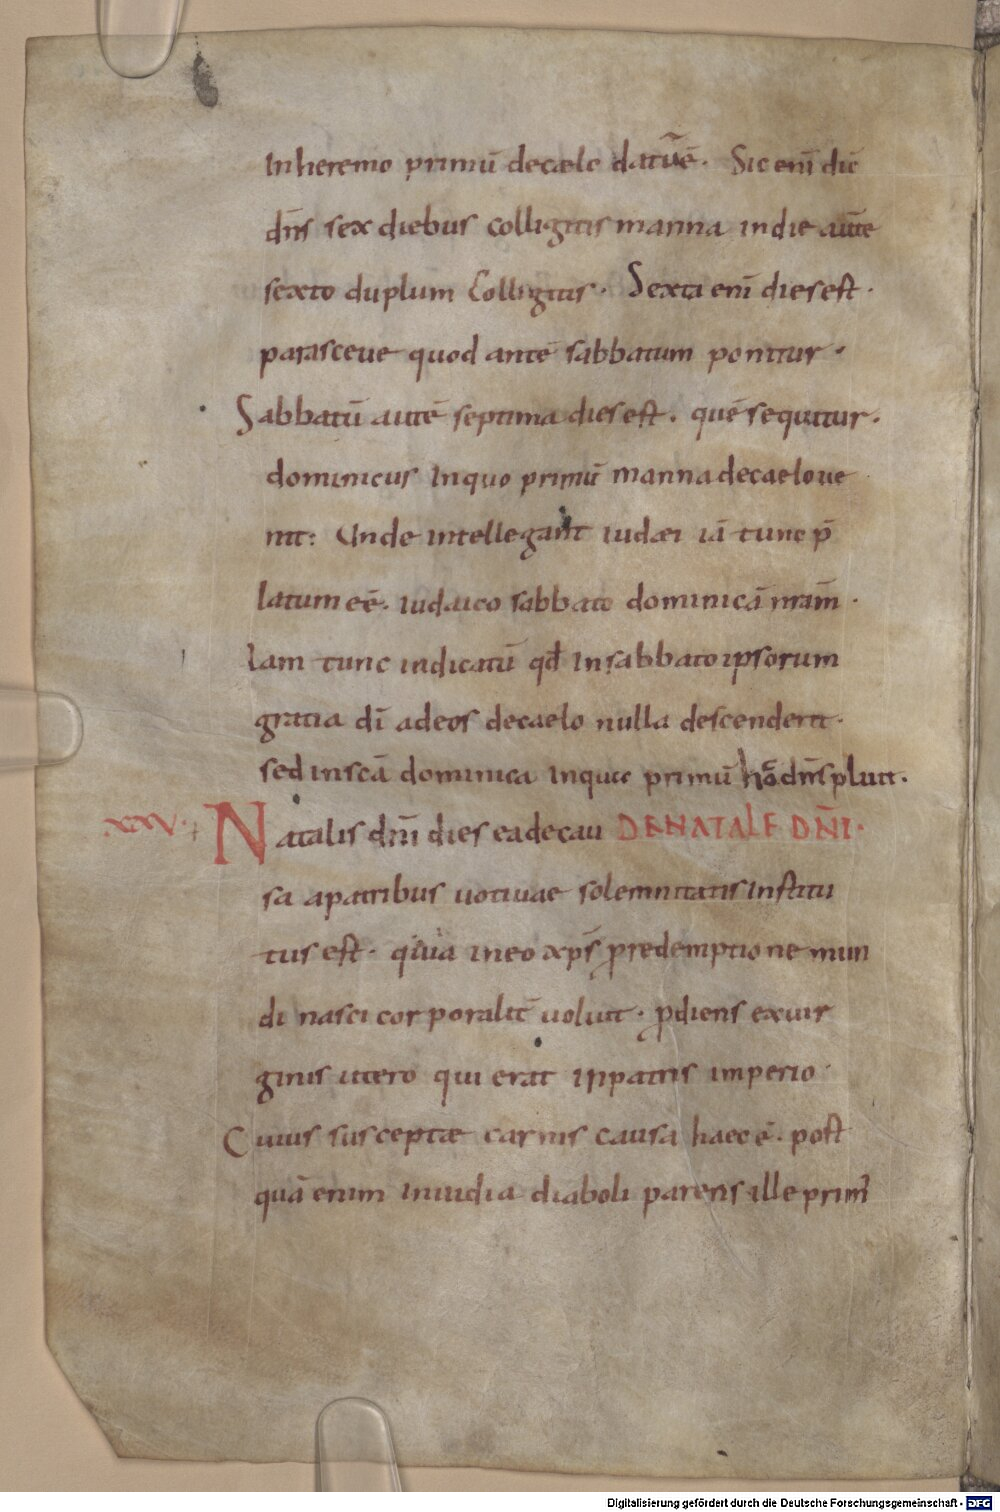 Inheremo primū decælo datūē. Sic enī dic
dn̄s sex diebus colligitis manna indie autē
sexto duplum Colligitis. Sexta enī dies est.
parasceue quod ante sabbatum ponitur.
Sabbatū autē septima dies est. quē sequitur.
dominicus Inquo primū manna decaelo ue
nit: Unde intellegant iudæi iā tunc p̄
latum eē. iudaico sabbato dominicā nr̄am.
Iam tunc indicatū qđ Insabbato ipsorum
gratia dī adeos decaelo nulla descenderit.
sed inscā dominica Inqua primū dn̄s pluit.
XXV. Natalis dn̄i dies eadecau DENATALE DN̄I.
sa apatribus uotiuae solemnitatis Institu
tus est. quia ineo xp̄s predemptione mun
di nasci corporalit̄ uoluit. pdiens exuir
ginis utero qui erat Inpatris imperio.
Cuius susceptæ carnis causa haec ē. post
quā enim Inuidia diaboli parens ille prim̄
Digitalisierung gefördert durch die Deutsche Forschungsgemeinschaft - DFG